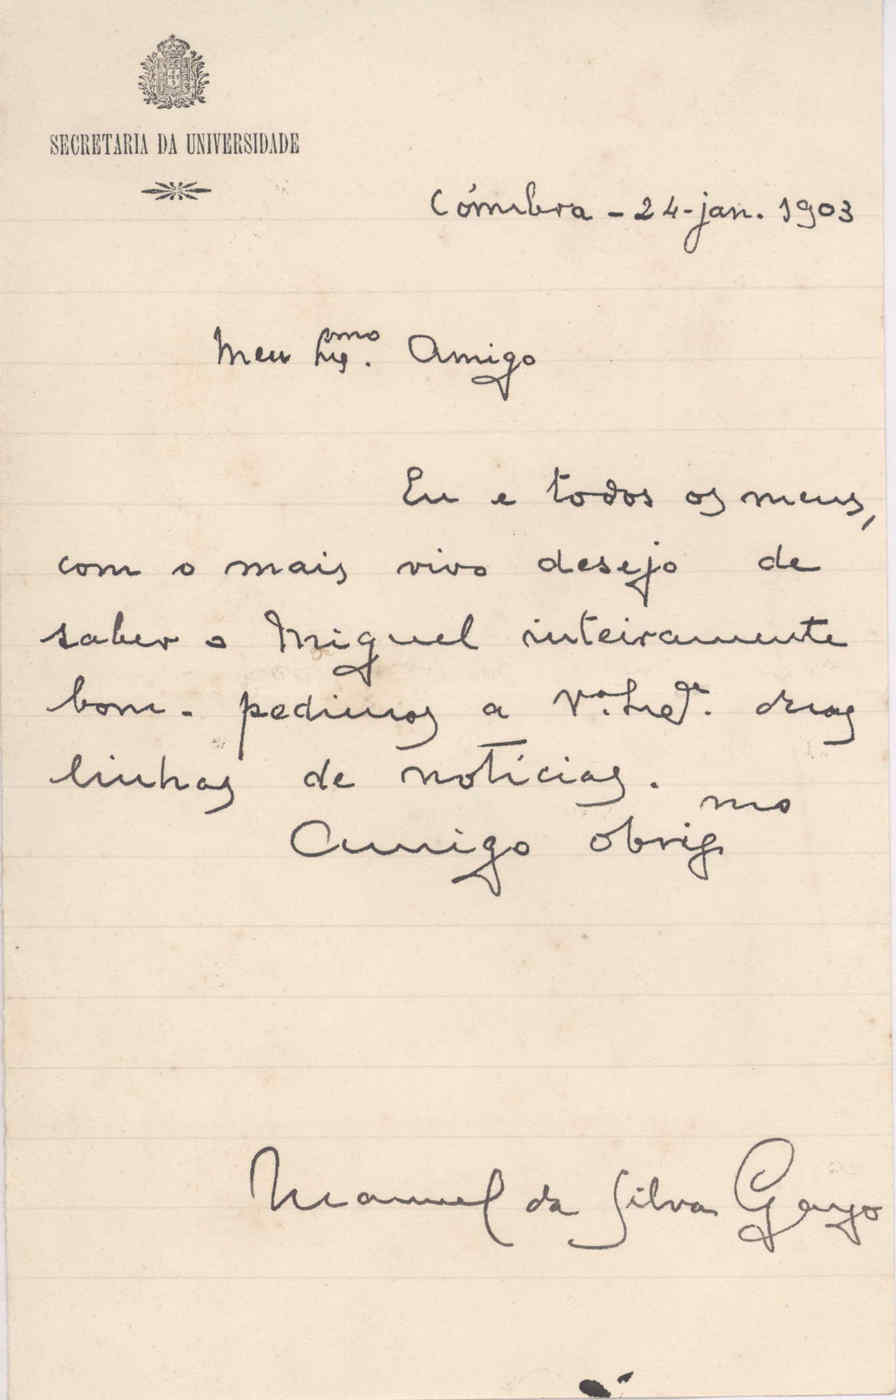 SECRETARIA DA UNIVERSIDADE
Cóimbra - 24-jan. 1903
Meu Exmo. Amigo
Eu e todos os meus,
com o mais vivo desejo de
saber o Miguel inteiramente
bom - pedimos a V.a Exca. duas
linhas de notícias.
Amigo obrigmo
Manuel da Silva Gayo